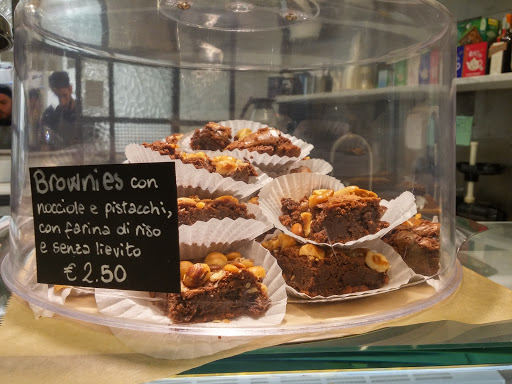 Brownies con
nocciole e pistacchi,
con farina di riso
e senza lievito
€ 2.50